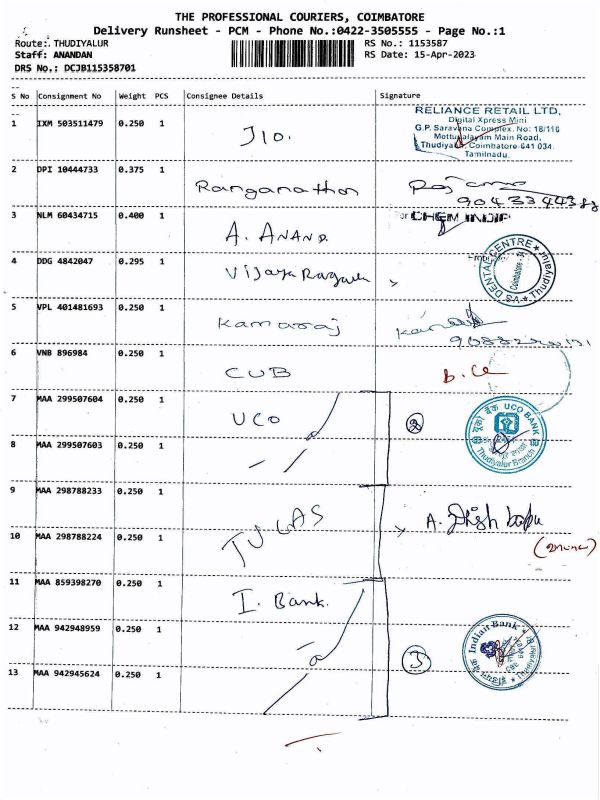 THE PROFESSIONAL COURIERS, COIMBATORE
Delivery Runsheet - PCM - Phone No.:0422-3505555 - Page No.:1
Route: THUDIYALUR RS No.: 1153587
Staff: ANANDAN RS Date: 15-Apr-2023
DRS No.: DCJB115358701
S No Consignment No Weight PCS Consignee Details Signature
1 IXM 503511479 0.250 1 JIO.
RELIANCE RETAIL LTD,
Digital Xpress Mini
G.P. Saravana Complex. No: 18/116
Mottupalayam Main Road,
Thudiyalur, Coimbatore-641 034.
Tamilnadu.
2 DPI 10444733 0.375 1 Ranganathan
3 NLM 60434715 0.400 1 A. ANAND
For CHEM INDIA
4 DDG 4842047 0.295 1 Vijaya Ragavan
DENTAL CENTRE
Thudiyalur
Coimbatore
5 VPL 401481693 0.250 1 Kamaraj
6 VNB 896984 0.250 1 CUB
7 MAA 299507604 0.250 1 UCO 2
यूको बैंक UCO BANK
Thudiyalur Branch
8 MAA 299507603 0.250 1
9 MAA 298788233 0.250 1 TUCAS A.
10 MAA 298788224 0.250 1
11 MAA 859398270 0.250 1 I. Bank.
12 MAA 942948959 0.250 1 3
Indian Bank
13 MAA 942945624 0.250 1